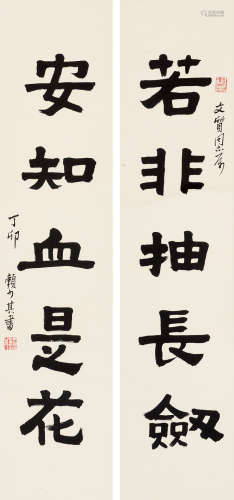 若非抽長劔
安知血是花
文質同志屬
丁卯
賴少其書